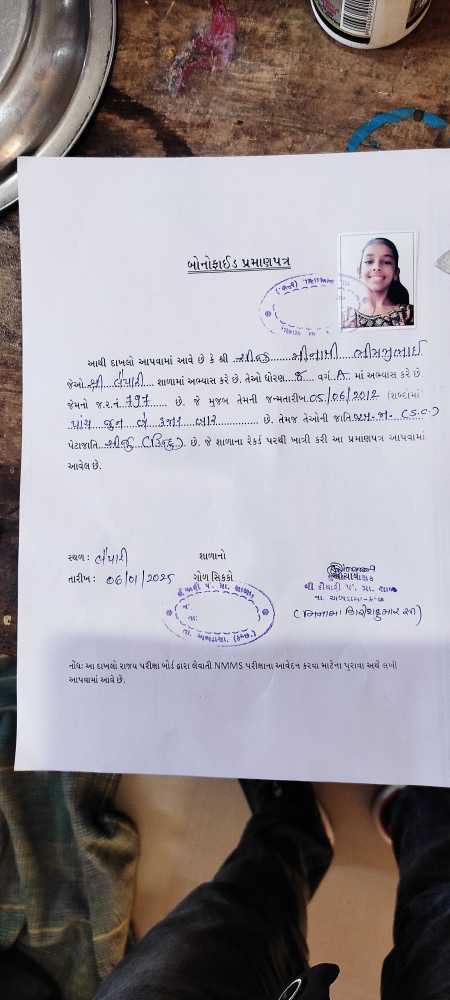 બોનોફાઈડ પ્રમાણપત્ર
આથી દાખલો આપવામાં આવે છે કે શ્રી સીજુ મીનાક્ષી ભીમજીભાઈ
જેઓ શ્રી શાળામાં અભ્યાસ કરે છે. તેઓ ધોરણ 8 વર્ગ A માં અભ્યાસ કરે છે
જેમનો જ.ર.નં. 797 છે. જે મુજબ તેમની જન્મતારીખ 05/06/2012 (શબ્દમાં)
પાંચ જુન બે હજાર બાર છે. તેમજ તેઓની જાતિ અનુ. જા. (S.C.)
પેટાજાતિ સીજુ (હિન્દુ) છે. જે શાળાના રેકર્ડ પરથી ખાત્રી કરી આ પ્રમાણપત્ર આપવામાં
આવેલ છે.
સ્થળ:
શાળાનો
તારીખ: 06/01/2025
ગોળ સિક્કો
પં. પ્રા. શાળા
તા. અબડાસા. (કચ્છ.)
શ્રી પં. પ્રા. શાળા
તા. અબડાસા-કચ્છ
નોંધ: આ દાખલો રાજ્ય પરીક્ષા બોર્ડ દ્વારા લેવાતી NMMS પરીક્ષાના આવેદન કરવા માટેના પુરાવા અર્થે લખી
આપવામાં આવે છે.